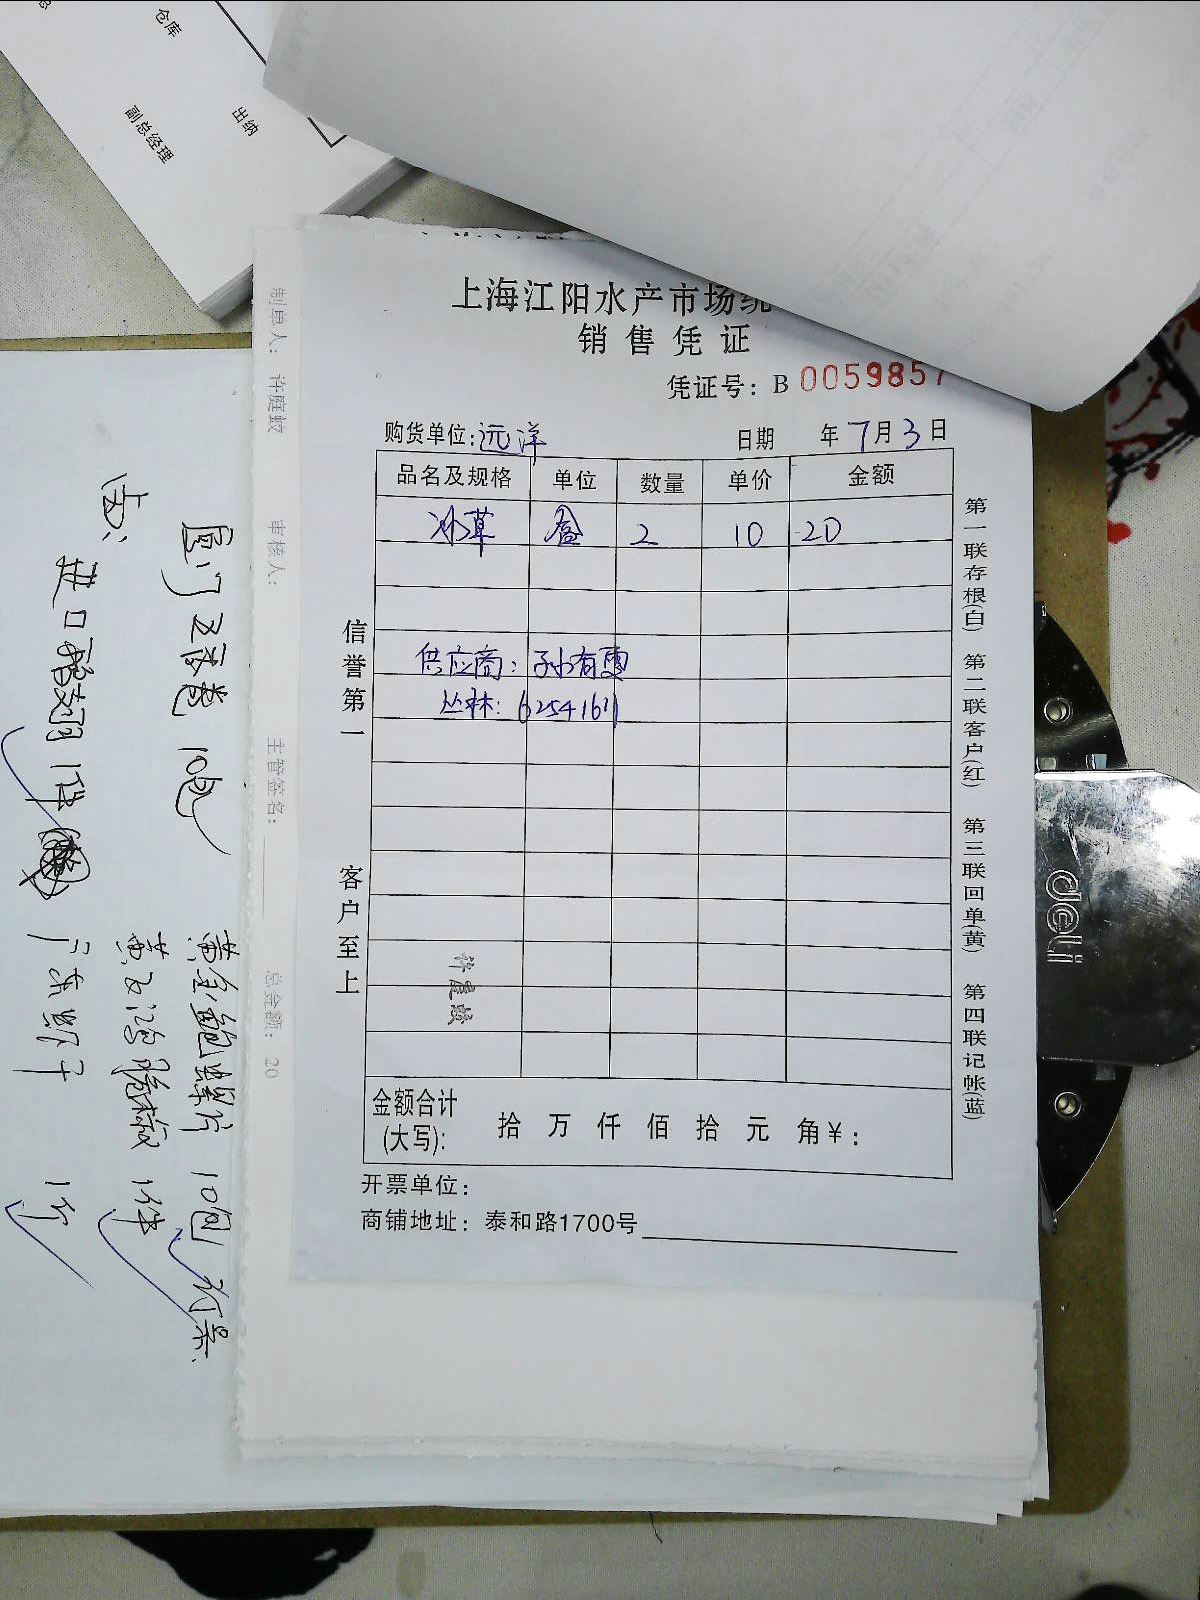 仓库
出纳
副总经理
上海江阳水产市场统
销售凭证
凭证号：B 0059857
购货单位:远洋 日期 年7月3日
品名及规格 单位 数量 单价 金额
冰草 盒 2 10 20
供应商：孙有雯
丛林：62541611
许庭蛟
信誉第一
客户至上
第一联存根(白) 第二联客户(红) 第三联回单(黄) 第四联记帐(蓝)
金额合计
(大写): 拾 万 仟 佰 拾 元 角￥:
开票单位:
商铺地址：泰和路1700号
制单人：许庭蛟 审核人： 主管签名： 总金额：20
10包
黄金鲍螺片 10包
1件
进口 1件
deli